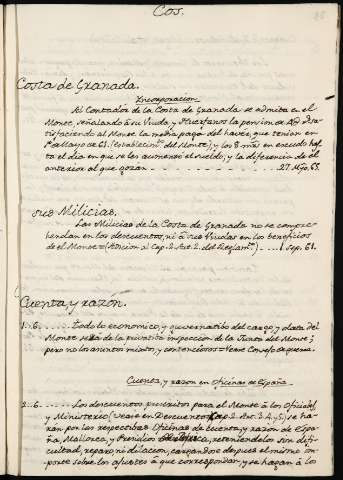 Cos.
Costa de Granada.
Incorporacion
Al Contador de la Costa de Granada se admita en el
Monte, señalando à su Viuda y Huerfanos la pension de
tisfaciendo al Monte la media paga del haver, que tenian en
1º de Mayo de 61. (establecimto. del Monte) y los 8 mrs. en escudo has
ta el dia en que se les aumentò el sueldo, y la diferencia de él
anterior al que gozan 27. Mzo. 65.
sus Milicias.
Las Milicias de la Costa de Granada no se compre-
hendan en los descuentos, ni à sus Viudas en los beneficios
de el Monte = (Adicion al Cap. 2. Art. 2. del Reglamto.) 1 Sep. 61.
Cuenta, y razòn.
1..6. Todo lo economico, y guvernatibo del cargo, y data del
Monte serà de la privatiba inspeccion de la Junta del Monte;
pero no los asuntos mixtos, y contenciosos = Vease Consejo de guerra.
Cuenta, y razon en Oficinas de España.
2..6. Los descuentos prescritos para el Monte à los Oficiales,
y Ministerio (vease en Descuentos Cap. 2. Art. 3. 4. y 5.) se ha-
ràn por las respectibas Oficinas de Cuenta, y razòn de Espa-
ña, Mallorca, y Presidios reteniendolos sin difi-
cultad, reparo, ni dilacion, cargandose despues el mismo im-
porte sobre los ajustes à que correspondan, y se hagan à los